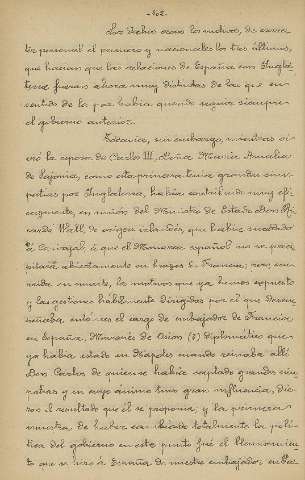 -202-
Los dichos eran los motivos, de carac-
ter personal el primero y nacionales los tres últimos,
que hacían que las relaciones de España con Ingla-
terra fueran ahora muy distintas de las que en
sentido de la paz había querido seguir siempre
el gobierno anterior.
sin embargo, mientras vi-
vió la esposa de Carlos III, doña María Amalia
de Sajonia, como esta princesa tenía grandes sim-
patías por Inglaterra, había contribuido muy efi-
cazmente, en unión del Ministro de Estado Don Ri-
cardo Wall, de origen irlandés, que había sucedido
á Carvajal, á que el Monarca español no se preci-
pitara abiertamente en brazos de Francia; pero, ocu-
rrida su muerte, los motivos que ya hemos expuesto
y las gestiones hábilmente dirigidas por el que desem-
peñaba entonces el cargo de embajador de Francia
en España, Marqués de Osun (1) diplomático que
ya había estado en Nápoles cuando reinaba allí
Don Carlos de quien se había captado grandes sim-
patías y en cuyo ánimo tuvo gran influencia, die-
ron el resultado que él se proponía, y la primera
muestra de haber cambiado totalmente la polí-
tica del gobierno en este punto fué el llamamien-
to que se hizo á España de nuestro embajador, en